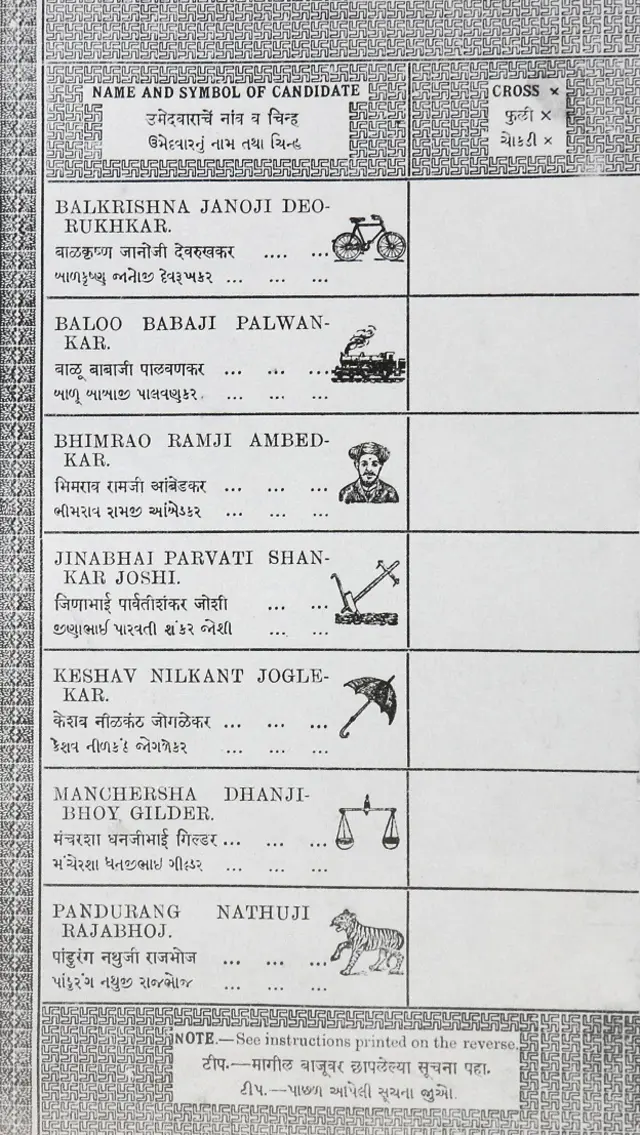 NAME AND SYMBOL OF CANDIDATE
उमेदवाराचें नांव व चिन्ह
ઉમેદવારનું નામ તથા ચિન્હ
CROSS ×
फुली ×
ચોકડી ×
BALKRISHNA JANOJI DEO-
RUKHKAR.
बाळकृष्ण जानोजी देवरुखकर .... ...
બાળકૃષ્ણ જાનોજી દેવરૂખકર ... ... ...
BALOO BABAJI PALWAN-
KAR.
बाळू बाबाजी पालवणकर ... ... ...
બાળૂ બાબાજી પાલવણકર ... ... ...
BHIMRAO RAMJI AMBED-
KAR.
भिमराव रामजी आंबेडकर ... ... ...
ભીમરાવ રામજી આંબેડકર ... ... ...
JINABHAI PARVATI SHAN-
KAR JOSHI.
जिणाभाई पार्वतीशंकर जोशी ... ...
જીણાભાઈ પારવતી શંકર જોશી ... ...
KESHAV NILKANT JOGLE-
KAR.
केशव नीळकंठ जोगळेकर ... ... ...
કેશવ નીળકંઠ જોગળેકર ... ... ...
MANCHERSHA DHANJI-
BHOY GILDER.
मंचरशा धनजीभाई गिल्डर ... ... ...
મંચેરશા ધનજીભાઇ ગીલ્ડર ... ... ...
PANDURANG NATHUJI
RAJABHOJ.
पांडुरंग नथुजी राजभोज ... ... ...
પાંડુરંગ નથુજી રાજભોજ ... ... ...
NOTE.—See instructions printed on the reverse.
टीप.—मागील बाजूवर छापलेल्या सूचना पहा.
ટીપ.—પાછળ આપેલી સૂચના જીઓ.